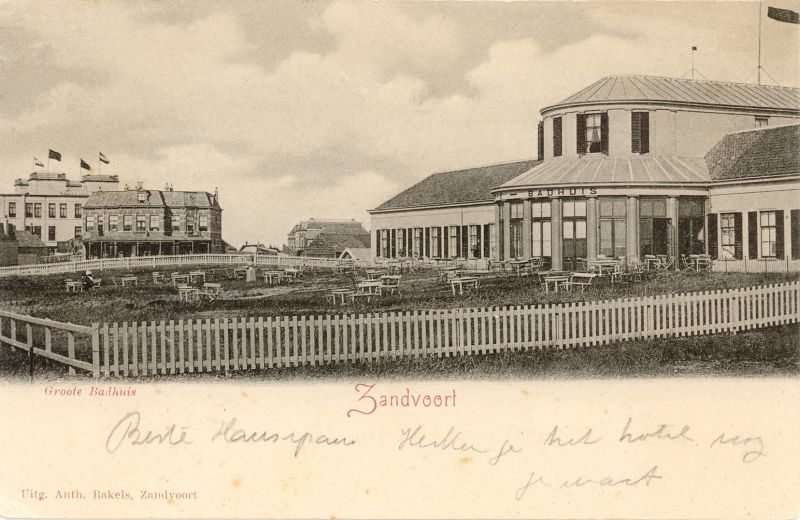 BADHUIS
Groote Badhuis
Zandvoort
Beste Herken je het hotel nog
je
Uitg. Anth. Bakels, Zandvoort